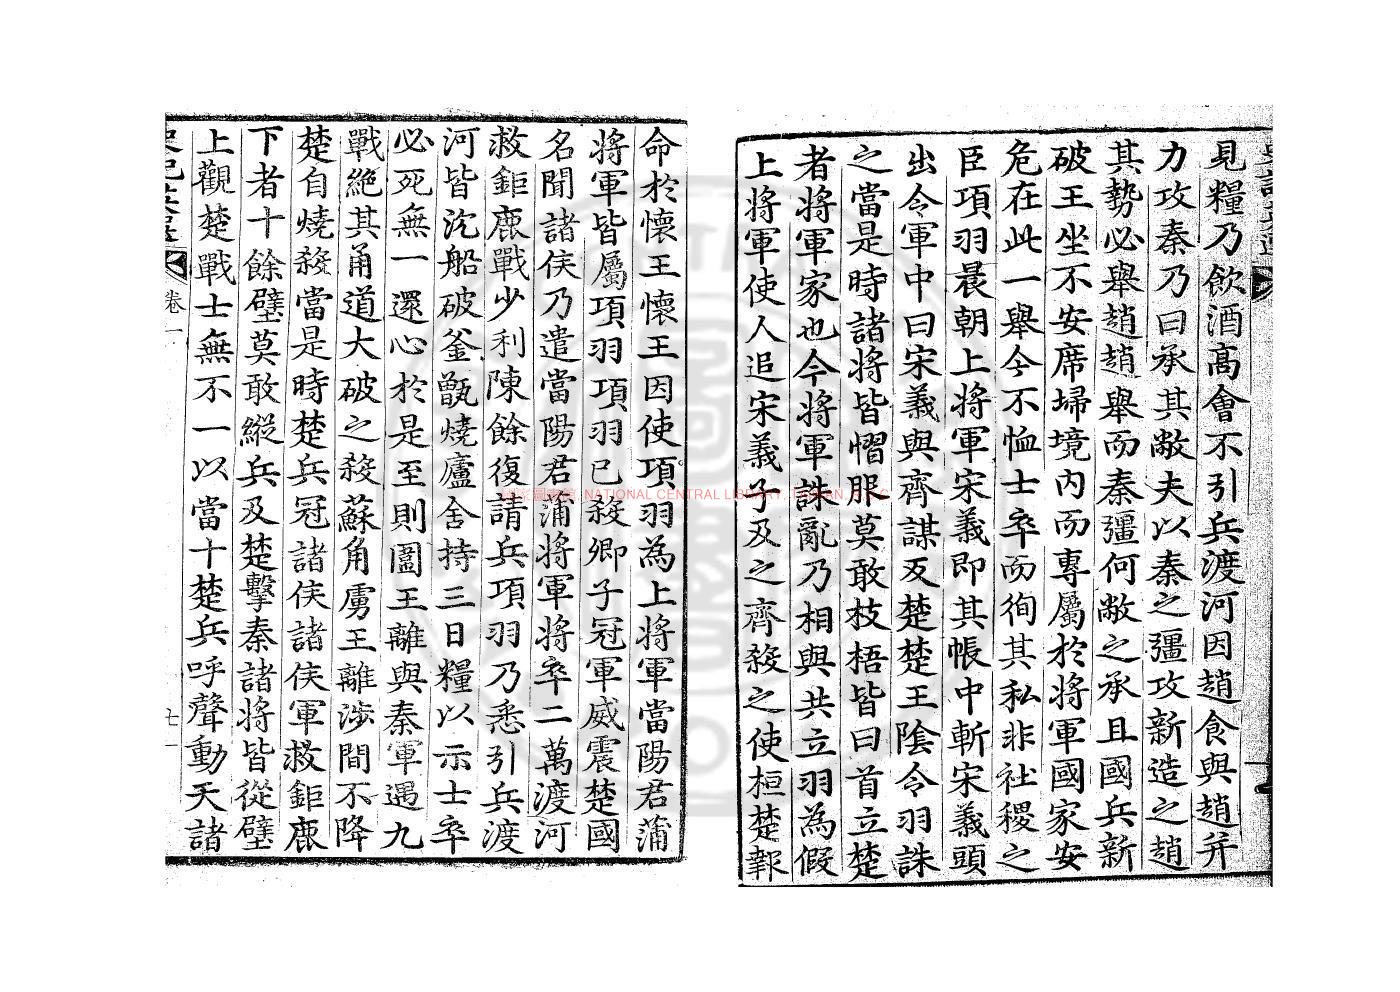 見糧乃飲酒髙會不引兵渡河因趙食與趙并
力攻秦乃曰承其敝夫以秦之彊攻新造之趙
其勢必舉趙趙舉而秦彊何敝之承且國兵新
破王坐不安席埽境内而專屬於將軍國家安
危在此一舉今不恤士卒而徇其私非社稷之
臣項羽晨朝上將軍宋義即其帳中斬宋義頭
出令軍中曰宋義與齊謀反楚楚王隂令羽誅
之當是時諸將皆慴服莫敢枝梧皆曰首立楚
者將軍家也今將軍誅亂乃相與共立羽為假
上將軍使人追宋義子及之齊殺之使桓楚報
命於懷王懷王因使項羽為上將軍當陽君蒲
將軍皆屬項羽項羽已殺卿子冠軍威震楚國
名聞諸侯乃遣當陽君蒲將軍將卒二萬渡河
救鉅鹿戰少利陳餘復請兵項羽乃悉引兵渡
河皆沈船破釜甑燒廬舍持三日糧以示士卒
必死無一還心於是至則圍王離與秦軍遇九
戰絶其甬道大破之殺蘇角虜王離涉間不降
楚自燒殺當是時楚兵冠諸侯諸侯軍救鉅鹿
下者十餘壁莫敢縱兵及楚擊秦諸將皆從壁
上觀楚戰士無不一以當十楚兵呼聲動天諸
卷一
七
國家圖書館, NATIONAL CENTRAL LIBRARY, TAIWAN, R.O.C